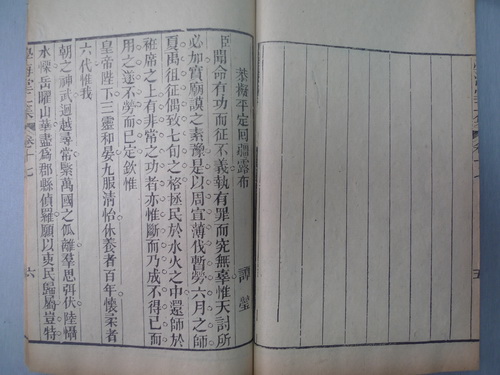 恭擬平定回疆露布 譚瑩
臣聞命有功而征不義執有罪而究無辜惟天討所
必加實廟謨之素豫是以周宣薄伐暫勞六月之師
夏禹徂征偶致七旬之格拯民於水火之中還師於
袵席之上有非常之功者亦惟斷而乃成不得已而
用之蓋不勞而已定欽惟
皇帝陛下三靈和晏九服清怡休養者百年懷柔者
六代惟我
朝之神武迥越尋常繄萬國之仳離羣思弭伏陸讋
水慄岳曜山華盡爲郡縣羅願以吏民歸屬豈特
卷十七 六